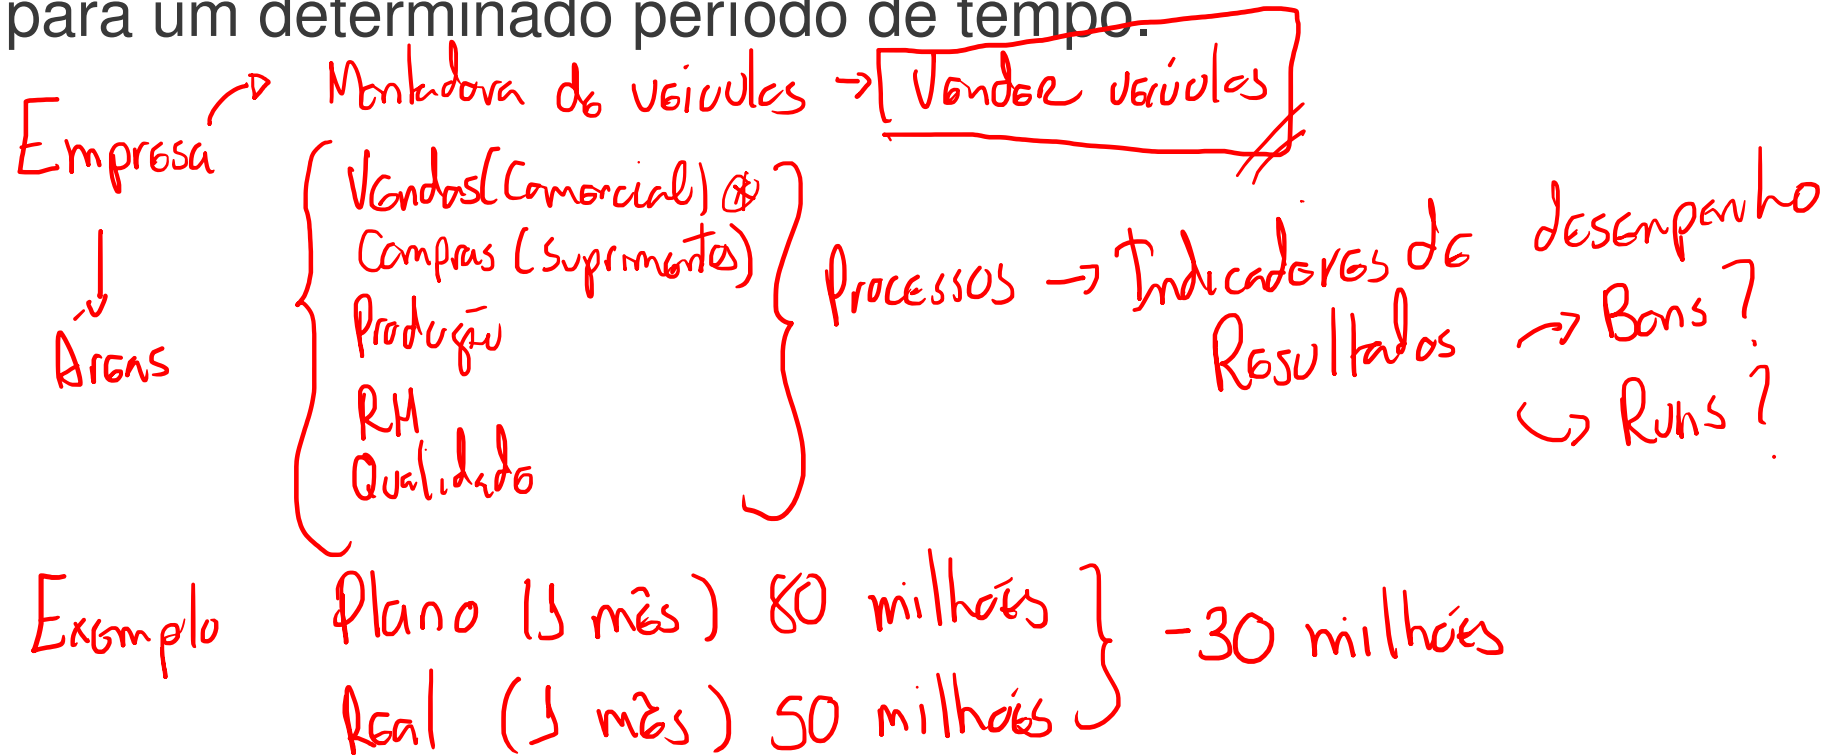 para um determinado período de tempo.
Empresa → Montadora de veículos → Vender veículos
Vendas (Comercial) *
Compras (Suprimentos)
Produção
RH
Qualidade
Áreas
Processos → Indicadores de desempenho
Resultados → Bons?
→ Ruins?
Exemplo Plano (1 mês) 80 milhões
Real (1 mês) 50 milhões
-30 milhões